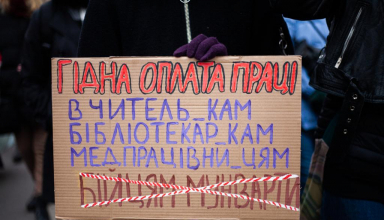 ГІДНА ОПЛАТА ПРАЦІ
ВЧИТЕЛЬ_КАМ
БІБЛІОТЕКАР_КАМ
МЕДПРАЦІВНИ_ЦЯМ
БІЙЦЯМ МУНВАРТИ